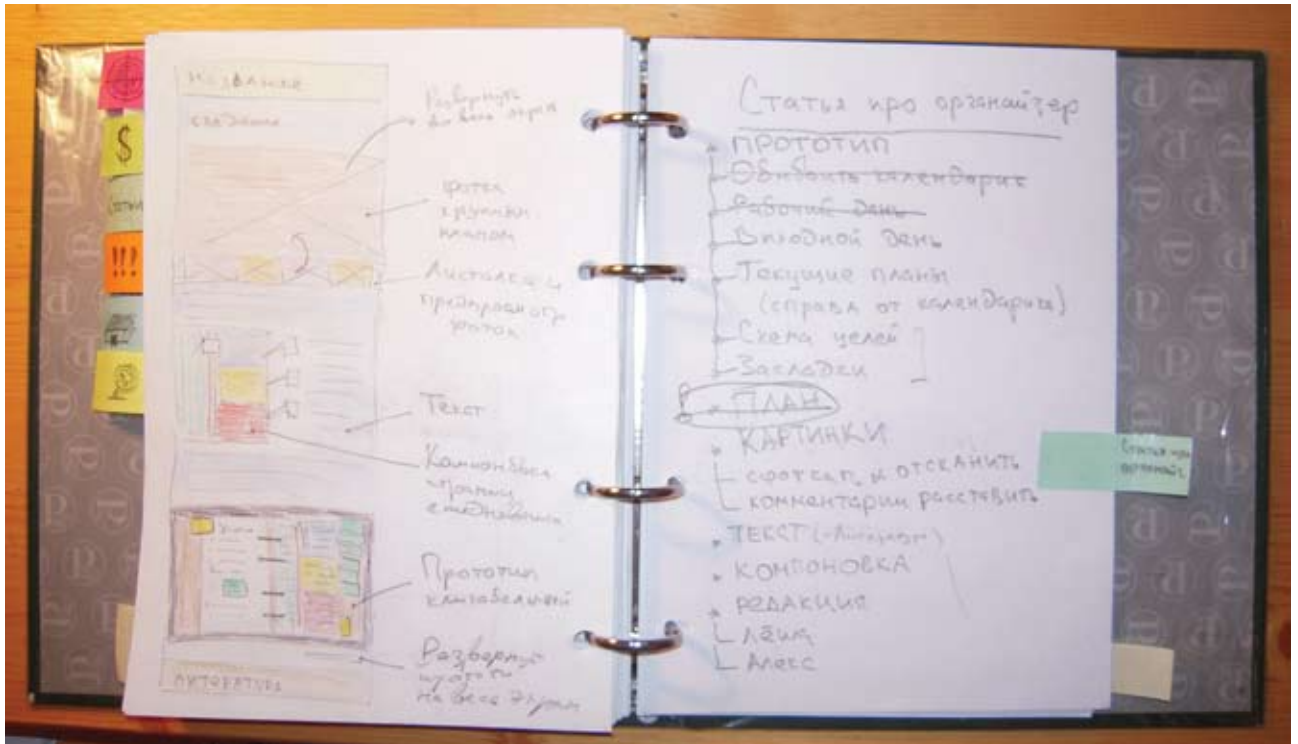 $
Статьи
!!!
НАЗВАНИЕ
введение
Развернуть
во весь экран
фотка
крупным
планом
Листалка с
предпросмотр
фоток
Текст
Компоновка
страниц
ежедневника
Прототип
кликабельный
Развернуть
на весь экран
ЛИТЕРАТУРА
Статья про органайзер
ПРОТОТИП
Обновить календарик
Рабочий день
Выходной день
Текущие планы
(справа от календарика)
Схема целей
Закладки
ПЛАН
КАРТИНКИ
сфоткать и отсканить
комментарии расставить
ТЕКСТ
КОМПОНОВКА
РЕДАКЦИЯ
Лёша
Алекс
Статья про
органайз.